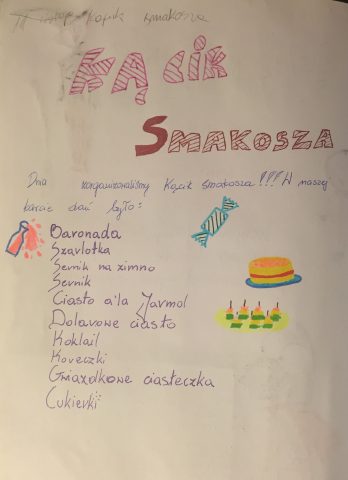 Kącik smakosza
KĄCIK
SMAKOSZA
Dnia zorganizowaliśmy Kącik smakosza!!! W naszej
karcie dań było:
Oaronada
Szavlotka
Sernik na zimno
Sernik
Ciasto a'la Jarmol
Dolarowe ciasto
Koktail
Koreczki
Gwiazdkowe ciasteczka
Cukierki